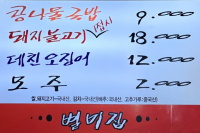 콩나물국밥 9.000
돼지불고기 1접시 18.000
데친오징어 12.000
모주 2.000
쌀,돼지고기-국내산, 김치-국내산(배추:국내산, 고추가루:중국산)
별미집